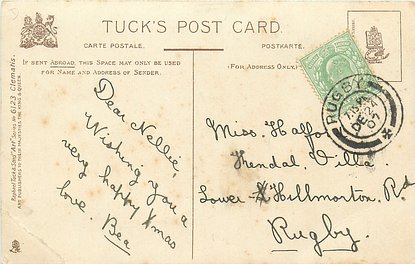 TUCK'S POST CARD.
CARTE POSTALE.
POSTKARTE.
IF SENT ABROAD, THIS SPACE MAY ONLY BE USED
FOR NAME AND ADDRESS OF SENDER.
(FOR ADDRESS ONLY.)
Raphael Tuck & Sons' "Art" Series No 6123 Clematis.
ART PUBLISHERS TO THEIR MAJESTIES THE KING & QUEEN.
Dear Nellie,
Wishing you a
very happy Xmas
love. Bea
RUGBY
DE
07
Miss.
Kendal Villa.
Lower Hillmorton. Rd
Rugby.